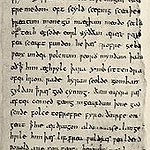 fremedon. oft scyld scefing sceaþe
þreatum monegū mægþum meodo setla
of teah egsode eorl syððan ærest wear
fea sceaft funden he þæs frofre geba
weox under wolcnum weorð myndum þah
oð þ him æghwylc þara ymb sittendra
ofer hron rade hyran scolde gomban
gyldan þ wæs god cyning. ðæm eafera wæs
æfter cenned geong in geardum þone god
sende folce tofrofre fyren ðearfe on
geat þ hie ær drugon aldor ase. lange
hwile him þæs lif frea wuldres wealdend